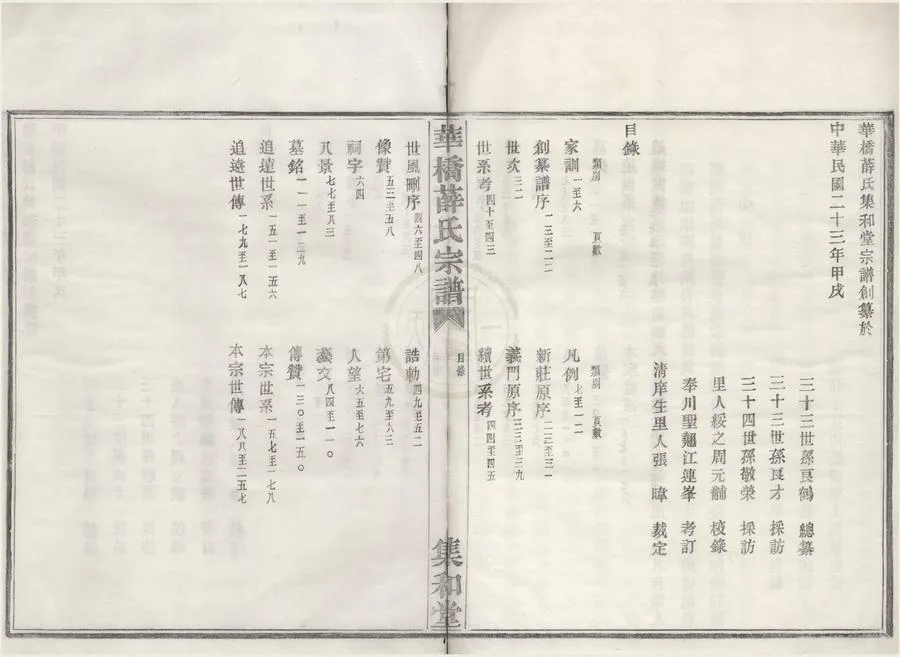 華橋薛氏集和堂宗譜創纂於
中華民國二十三年甲戌
三十三世孫良鶴 總纂
三十三世孫良才 採訪
三十四世孫敬榮 採訪
里人綏之周元黼 校錄
奉川聖翹江連峯 考訂
清岸生里人張暐 裁定
目錄
類別 頁數
類別 頁數
家訓 一至六
凡例 七至一二
創纂譜序 一三至二二
新莊原序 二三至三一
世次 三二
義門原序 三三至三九
世系考 四十至四三
續世系考 四四至四五
華橋薛氏宗譜
目錄
集和堂
世風剛序 四六至四八
誥勅 四九至五二
像贊 五三至五八
第宅 五九至六三
祠宇 六四
人望 六五至七六
八景 七七至八三
藝文 八四至一一〇
墓銘 一一一至一二九
傳贊 一三〇至一五〇
追遠世系 一五一至一五六
本宗世系 一五七至一七八
追遠世傳 一七九至一八七
本宗世傳 一八八至二五七